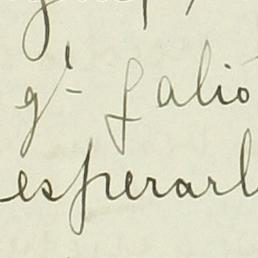 q.e salió
esperarl